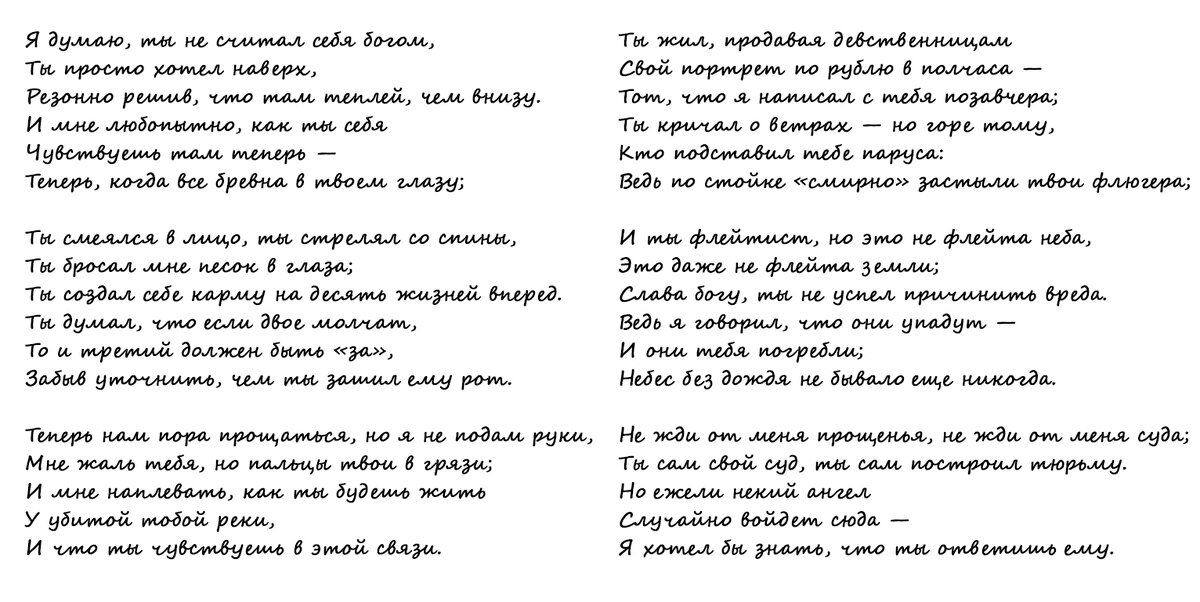 Я думаю, ты не считал себя богом,
Ты просто хотел наверх,
Резонно решив, что там теплей, чем внизу.
И мне любопытно, как ты себя
Чувствуешь там теперь —
Теперь, когда все бревна в твоем глазу;
Ты смеялся в лицо, ты стрелял со спины,
Ты бросал мне песок в глаза;
Ты создал себе карму на десять жизней вперед.
Ты думал, что если двое молчат,
То и третий должен быть «за»,
Забыв уточнить, чем ты зашил ему рот.
Теперь нам пора прощаться, но я не подам руки,
Мне жаль тебя, но пальцы твои в грязи;
И мне наплевать, как ты будешь жить
У убитой тобой реки,
И что ты чувствуешь в этой связи.
Ты жил, продавая девственницам
Свой портрет по рублю в полчаса —
Тот, что я написал с тебя позавчера;
Ты кричал о ветрах — но горе тому,
Кто подставил тебе паруса:
Ведь по стойке «смирно» застыли твои флюгера;
И ты флейтист, но это не флейта неба,
Это даже не флейта земли;
Слава богу, ты не успел причинить вреда.
Ведь я говорил, что они упадут —
И они тебя погребли;
Небес без дождя не бывало еще никогда.
Не жди от меня прощенья, не жди от меня суда;
Ты сам свой суд, ты сам построил тюрьму.
Но ежели некий ангел
Случайно войдет сюда —
Я хотел бы знать, что ты ответишь ему.